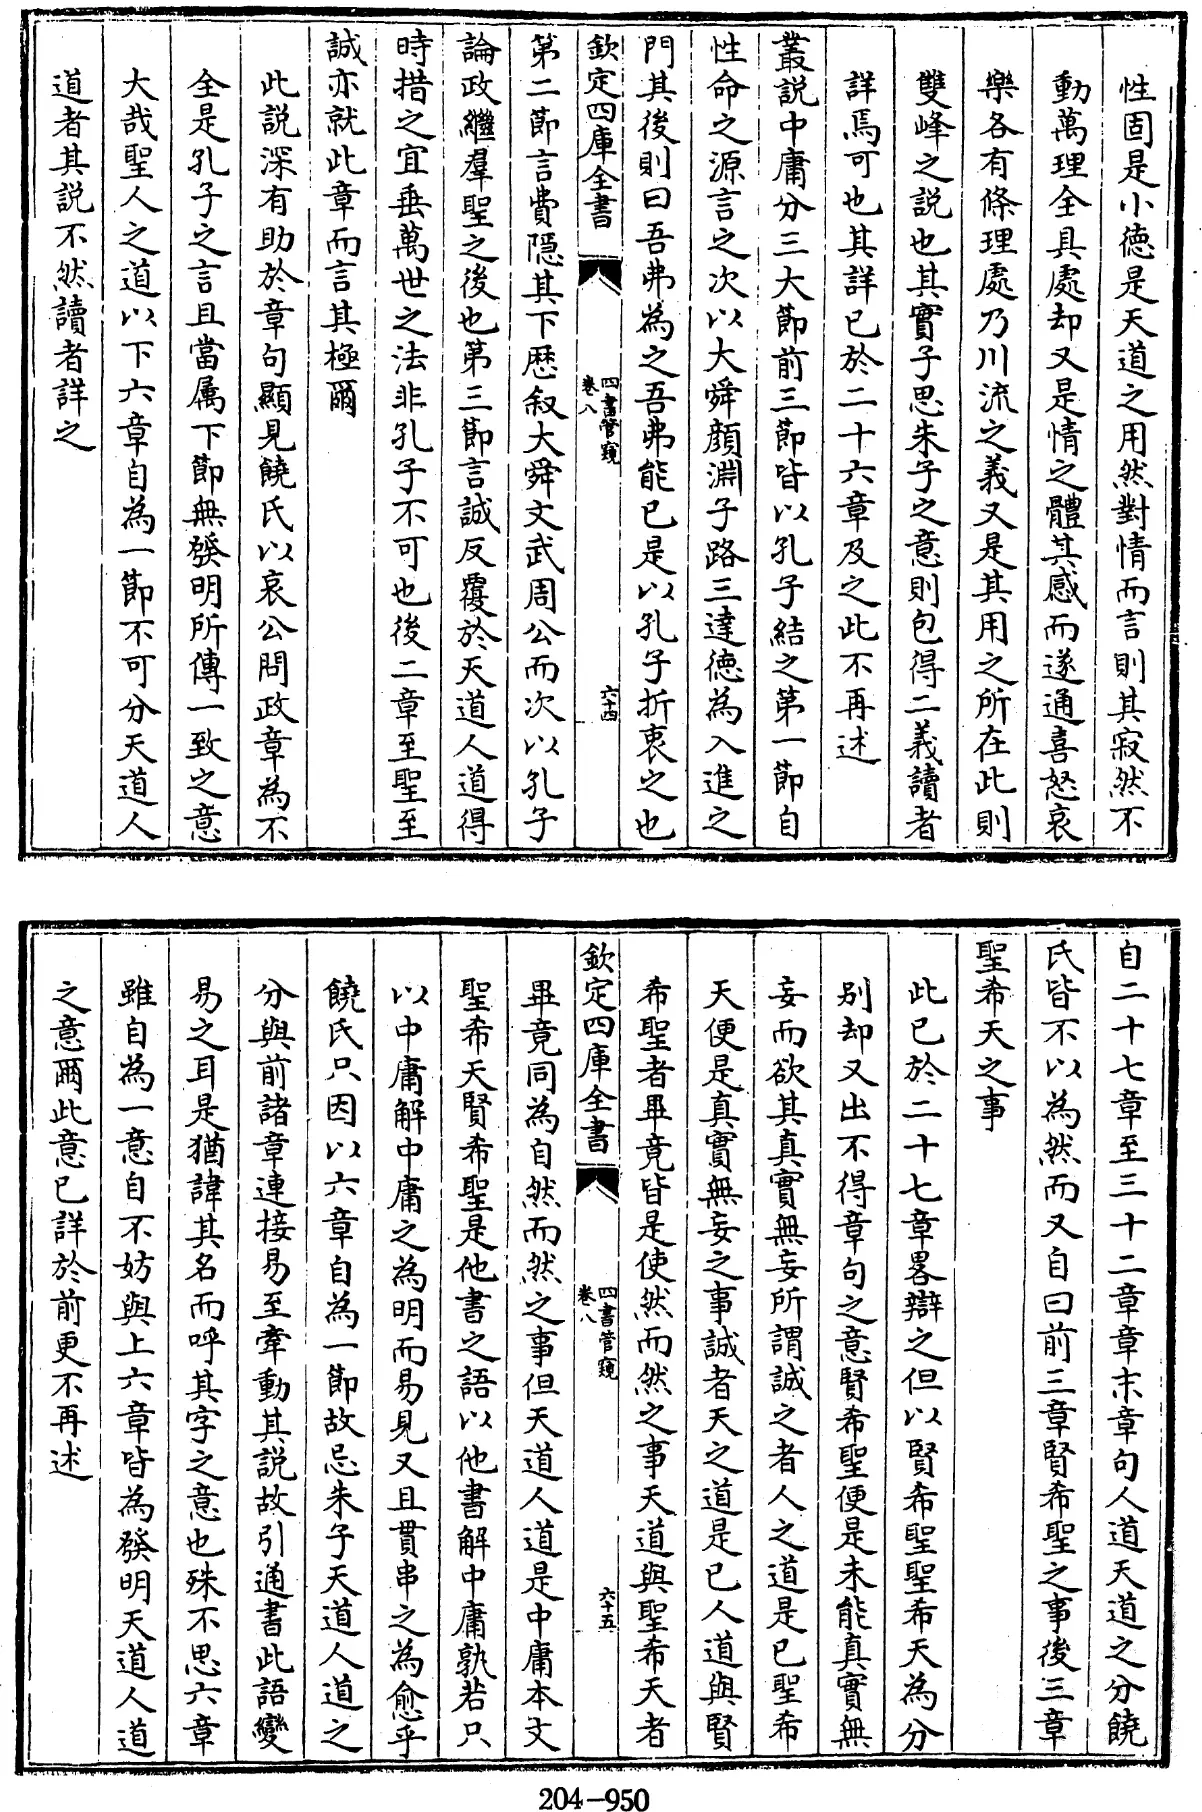 性固是小德是天道之用然對情而言則其寂然不
動萬理全具處却又是情之體其感而遂通喜怒哀
樂各有條理處乃川流之義又是其用之所在此則
雙峰之說也其實子思朱子之意則包得二義讀者
詳焉可也其詳已於二十六章及之此不再述
叢說中庸分三大節前三節皆以孔子結之第一節自
性命之源言之次以大舜顔淵子路三達德為入進之
門其後則曰吾弗為之吾弗能已是以孔子折衷之也
欽定四庫全書
四書管窺
卷八
六十四
第二節言費隱其下歷叙大舜文武周公而次以孔子
論政繼羣聖之後也第三節言誠反覆於天道人道得
時措之宜垂萬世之法非孔子不可也後二章至聖至
誠亦就此章而言其極爾
此說深有助於章句顯見饒氏以哀公問政章為不
全是孔子之言且當屬下節無發明所傳一致之意
大哉聖人之道以下六章自為一節不可分天道人
道者其說不然讀者詳之
自二十七章至三十二章章末章句人道天道之分饒
氏皆不以為然而又自曰前三章賢希聖之事後三章
聖希天之事
此已於二十七章畧辯之但以賢希聖聖希天為分
别却又出不得章句之意賢希聖便是未能真實無
妄而欲其真實無妄所謂誠之者人之道是已聖希
天便是真實無妄之事誠者天之道是已人道與賢
希聖者畢竟皆是使然而然之事天道與聖希天者
欽定四庫全書
四書管窺
卷八
六十五
畢竟同為自然而然之事但天道人道是中庸本文
聖希天賢希聖是他書之語以他書解中庸孰若只
以中庸解中庸之為明而易見又且貫串之為愈乎
饒氏只因以六章自為一節故忌朱子天道人道之
分與前諸章連接易至牽動其說故引通書此語變
易之耳是猶諱其名而呼其字之意也殊不思六章
雖自為一意自不妨與上六章皆為發明天道人道
之意爾此意已詳於前更不再述
204-950